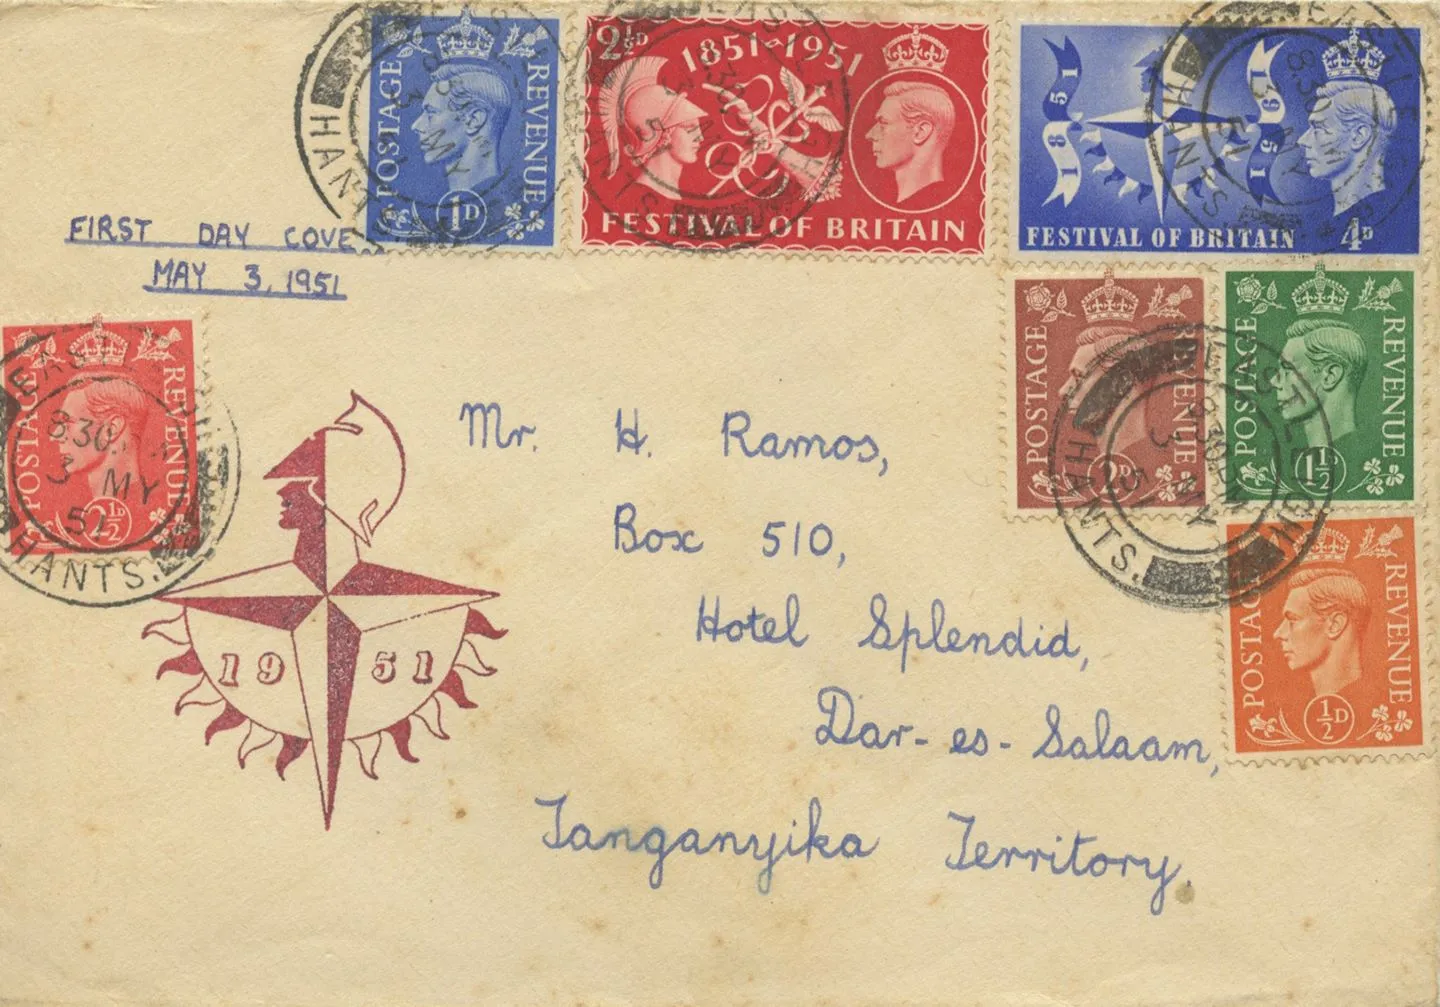 POSTAGE REVENUE 1D
2½D 1851-1951 FESTIVAL OF BRITAIN
1851 1951 FESTIVAL OF BRITAIN 4D
FIRST DAY COVE
MAY 3, 1951
POSTAGE REVENUE 2D
POSTAGE REVENUE 1½D
POSTAGE REVENUE 2½D
EASTLEIGH
8.30
3 MY
51
HANTS.
POSTAGE REVENUE ½D
1951
Mr. H. Ramos,
Box 510,
Hotel Splendid,
Dar-es-Salaam,
Tanganyika Territory.